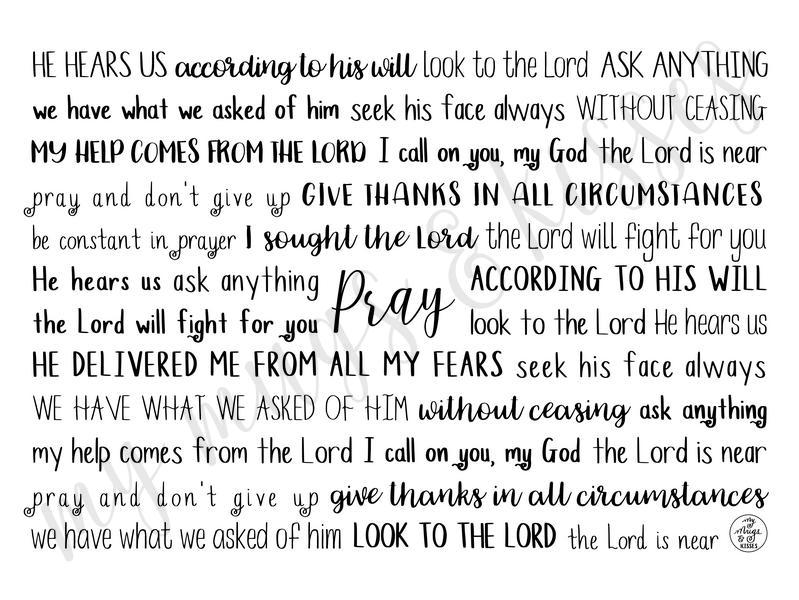 HE HEARS US according to his will look to the Lord ASK ANYTHING
we have what we asked of him seek his face always WITHOUT CEASING
MY HELP COMES FROM THE LORD I call on you, my God the Lord is near
pray and don't give up GIVE THANKS IN ALL CIRCUMSTANCES
be constant in prayer I sought the Lord the Lord will fight for you
He hears us ask anything Pray ACCORDING TO HIS WILL
the Lord will fight for you look to the Lord He hears us
HE DELIVERED ME FROM ALL MY FEARS seek his face always
WE HAVE WHAT WE ASKED OF HIM without ceasing ask anything
my help comes from the Lord I call on you, my God the Lord is near
pray and don't give up give thanks in all circumstances
we have what we asked of him LOOK TO THE LORD the Lord is near
my Mugs & KISSES
my mugs & kisses